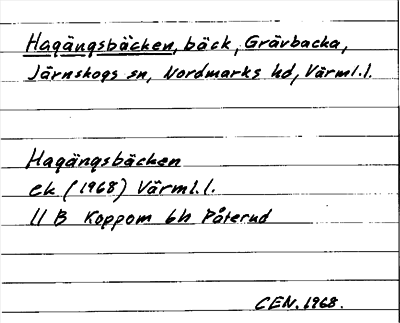 Hagängsbäcken, bäck, Grävbacka,
Järnskogs sn, Nordmarks hd, Värml.l.
Hagängsbäcken
ek (1968) Värml.l.
11 B Koppom 6h Påterud
CEN. 1968.